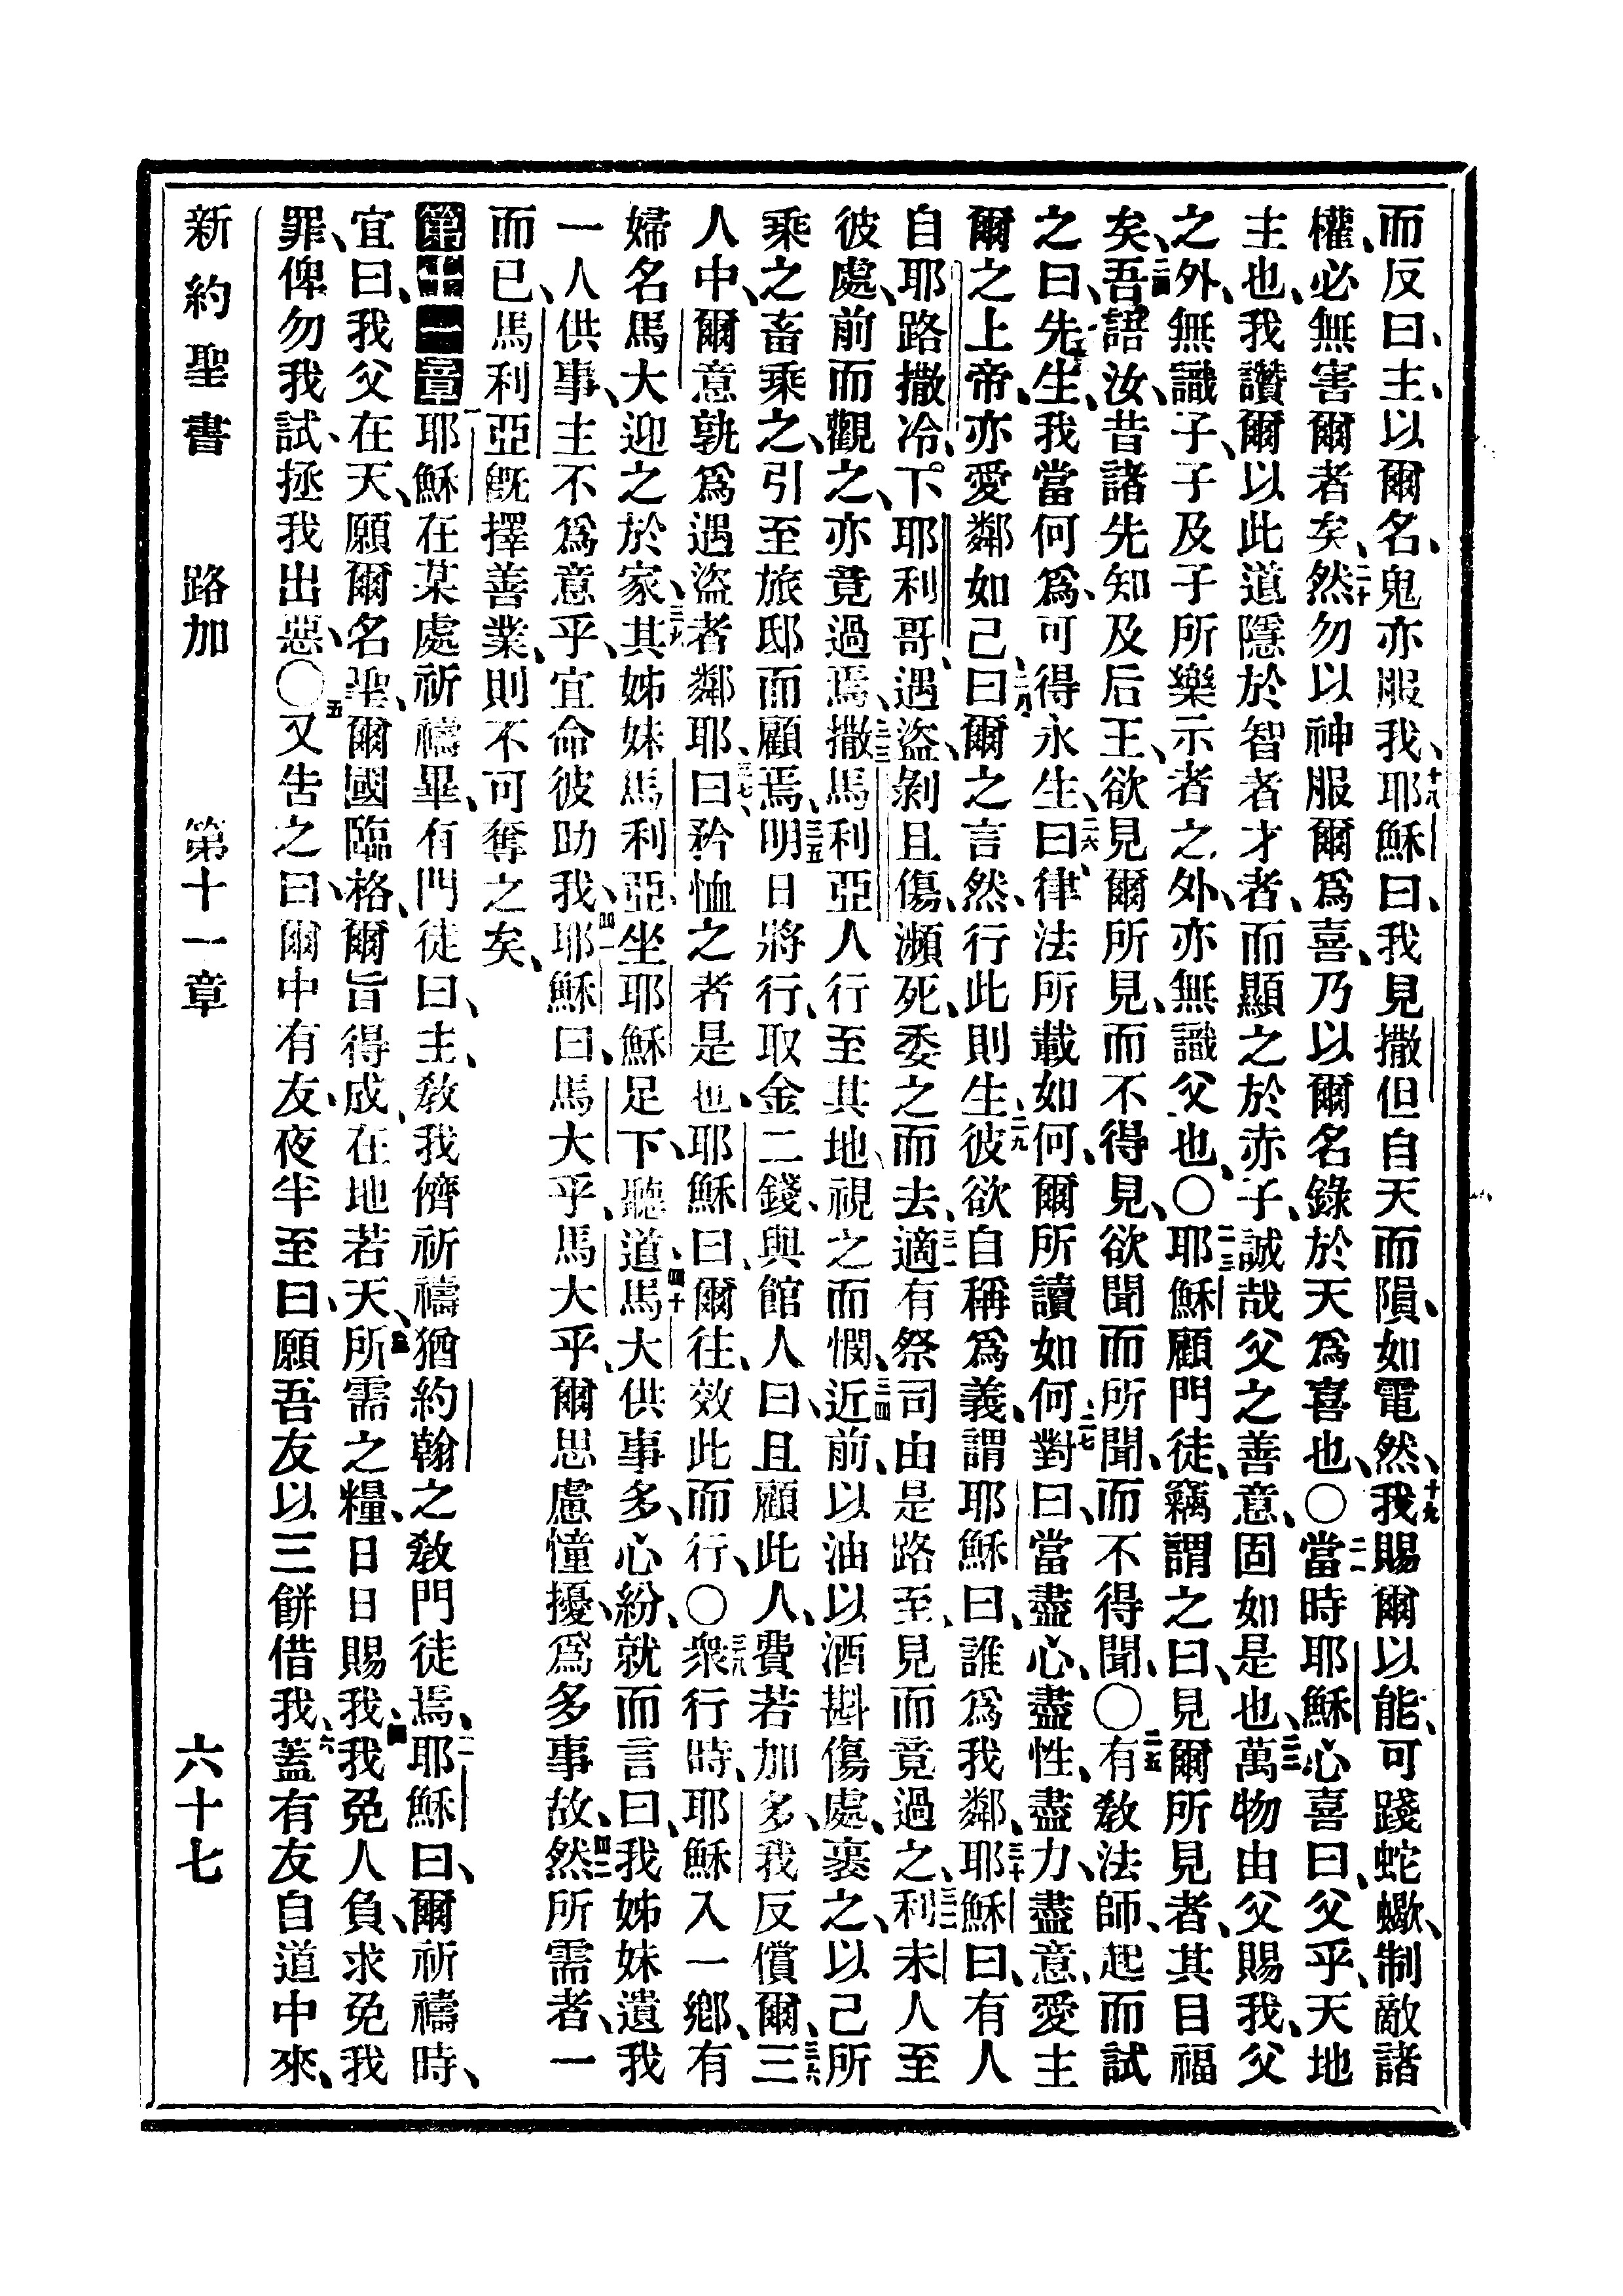 而反曰、主、以爾名、鬼亦服我、十八耶穌曰、我見撒但自天而隕、如電然、十九我賜爾以能、可踐蛇蠍、制敵諸
權、必無害爾者矣、二十然勿以神服爾爲喜、乃以爾名錄於天爲喜也、〇二一當時耶穌心喜曰、父乎、天地
主也、我讚爾以此道隱於智者才者、而顯之於赤子、誠哉父之善意、固如是也、二二萬物由父賜我、父
之外、無識子、子及子所樂示者之外、亦無識父也、〇二三耶穌顧門徒、竊謂之曰、見爾所見者、其目福
矣、二四吾語汝、昔諸先知及后王、欲見爾所見、而不得見、欲聞而所聞、而不得聞、〇二五有教法師、起而試
之曰、先生、我當何爲、可得永生、二六曰、律法所載如何、爾所讀如何、二七對曰、當盡心、盡性、盡力、盡意、愛主
爾之上帝、亦愛鄰如己、二八曰、爾之言然、行此則生、二九彼欲自稱爲義、謂耶穌曰、誰爲我鄰、三十耶穌曰、有人
自耶路撒冷、下耶利哥、遇盜、剝且傷、瀕死、委之而去、三一適有祭司由是路至、見而竟過之、三二利未人至
彼處、前而觀之、亦竟過焉、三三撒馬利亞人行至其地、視之而憫、三四近前、以油以酒斟傷處、裹之、以己所
乘之畜乘之、引至旅邸而顧焉、三五明日將行、取金二錢、與館人曰、且顧此人、費若加多、我反償爾、三六三
人中、爾意孰爲遇盜者鄰耶、三七曰、矜恤之者是也、耶穌曰、爾往、效此而行、〇三八衆行時、耶穌入一鄉、有
婦名馬大迎之於家、三九其姊妹馬利亞、坐耶穌足下、聽道、四十馬大供事多、心紛、就而言曰、我姊妹遺我
一人供事、主不爲意乎、宜命彼助我、四一耶穌曰、馬大乎、馬大乎、爾思慮憧擾、爲多事故、四二然所需者、一
而已、馬利亞旣擇善業、則不可奪之矣、
第十一章 一耶穌在某處祈禱畢、有門徒曰、主、敎我儕祈禱猶約翰之敎門徒焉、二耶穌曰、爾祈禱時、
宜曰、我父在天、願爾名聖、爾國臨格、爾旨得成、在地若天、三所需之糧、日日賜我、四我免人負、求免我
罪、俾勿我試、拯我出惡、〇五又吿之曰、爾中有友、夜半至曰、願吾友以三餅借我、六蓋有友自道中來、
新約聖書 路加 第十一章 六十七